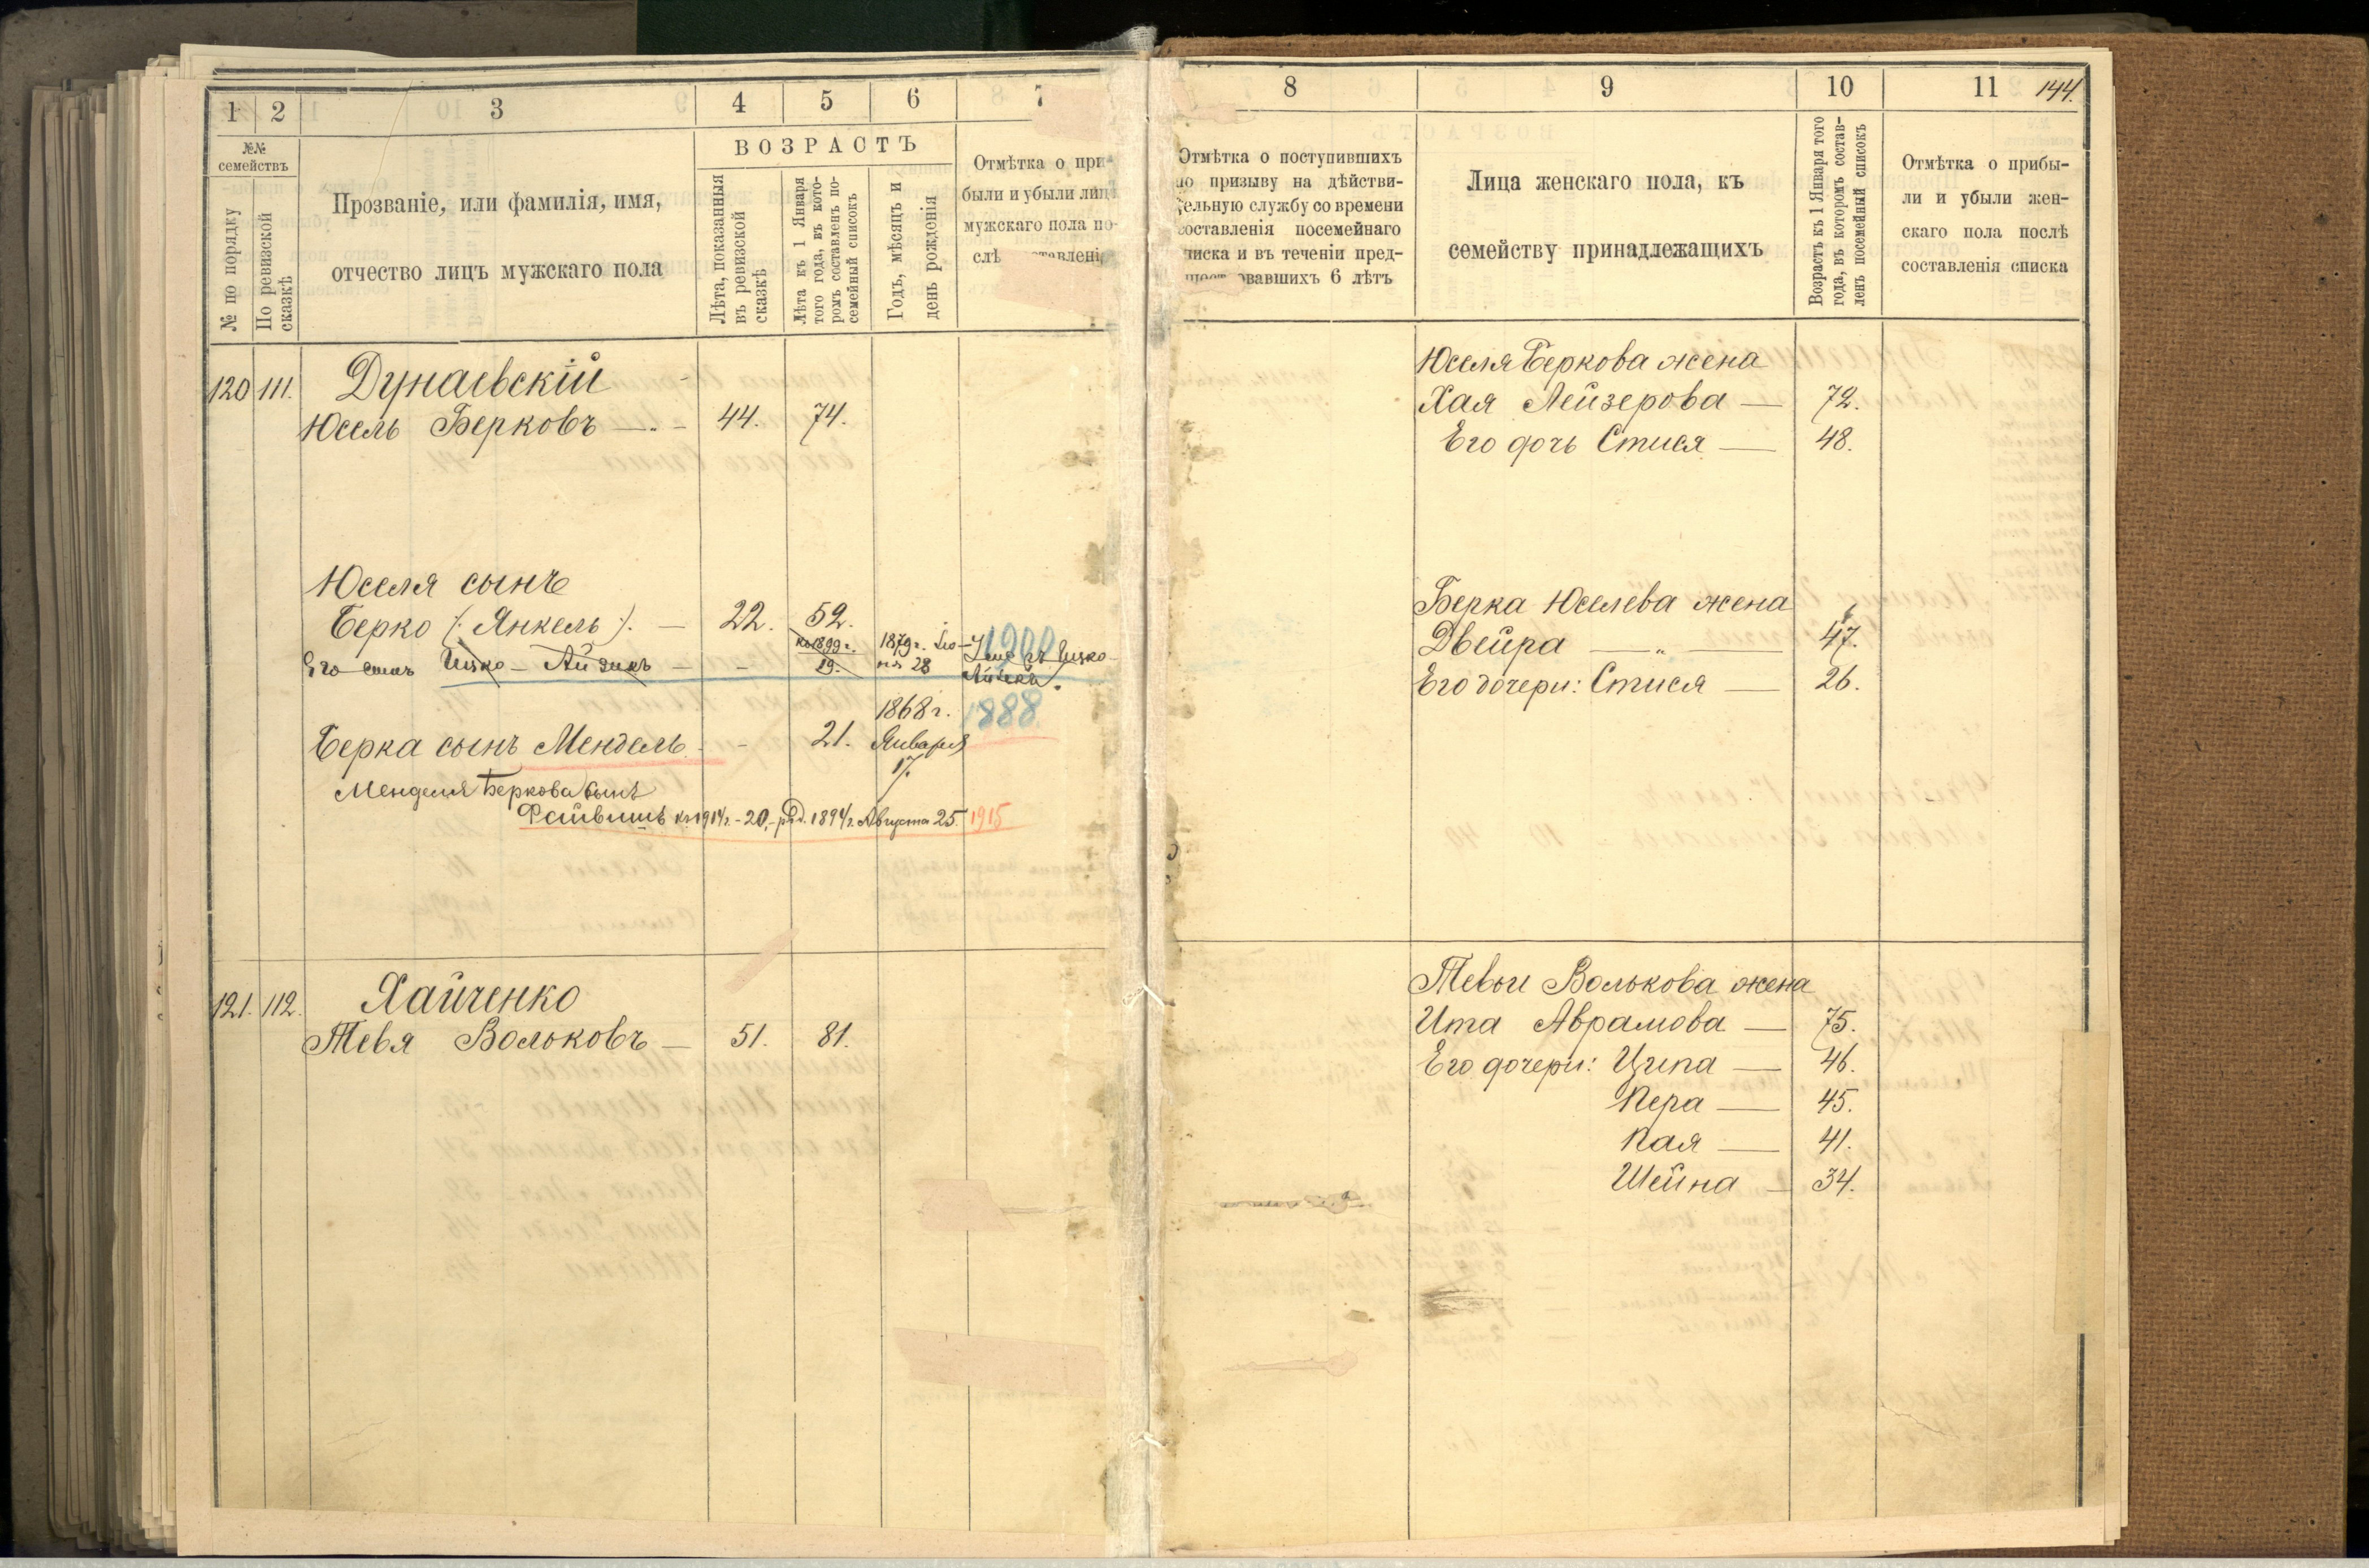 1 2 3 4 5 6 7
№№ семействъ
№ по порядку
По ревизской сказкѣ
Прозваніе, или фамилія, имя,
отчество лицъ мужскаго пола
ВОЗРАСТЪ
Лѣта, показанныя
въ ревизской
сказкѣ
Лѣта къ 1 Января
того года, въ кото-
ромъ составленъ по-
семейный списокъ
Годъ, мѣсяцъ и
день рожденія
Отмѣтка о при-
были и убыли лицъ
мужскаго пола по-
слѣ
120 111. Дунаевскій
Юсель Берковъ — 44. 74.
Юселя сынъ
Берко (: Янкель :) — 22. 52.
Его сынъ Ицко - Айзикъ - - къ 1899 г. 19. 1879 г. 28 1900
1868 г. 1888
Берка сынъ Мендель - - 21. Января
17.
Менделя Беркова сынъ
Файвишъ къ 1914 г. - 20, - род. 1894 г. Августа 25. 1915
121. 112. Хайченко
Тевя Вольковъ — 51. 81.
8 9 10 11 144.
Отмѣтка о поступившихъ
по призыву на дѣйстви-
тельную службу со времени
составленія посемейнаго
списка и въ теченіи пред-
шествовавшихъ 6 лѣтъ
Лица женскаго пола, къ
семейству принадлежащихъ
Возрастъ къ 1 Января того
года, въ которомъ состав-
ленъ посемейный списокъ
Отмѣтка о прибы-
ли и убыли жен-
скаго пола послѣ
составленія списка
Юселя Беркова жена
Хая Лейзерова — 72.
Его дочь Стися — 48.
Берка Юселева жена
Двейра — „ — 47.
Его дочери: Стися — 26.
Тевьи Волькова жена
Ита Аврамова — 75.
Его дочери: Ципа — 46.
Пера — 45.
Кая — 41.
Шейна — 34.